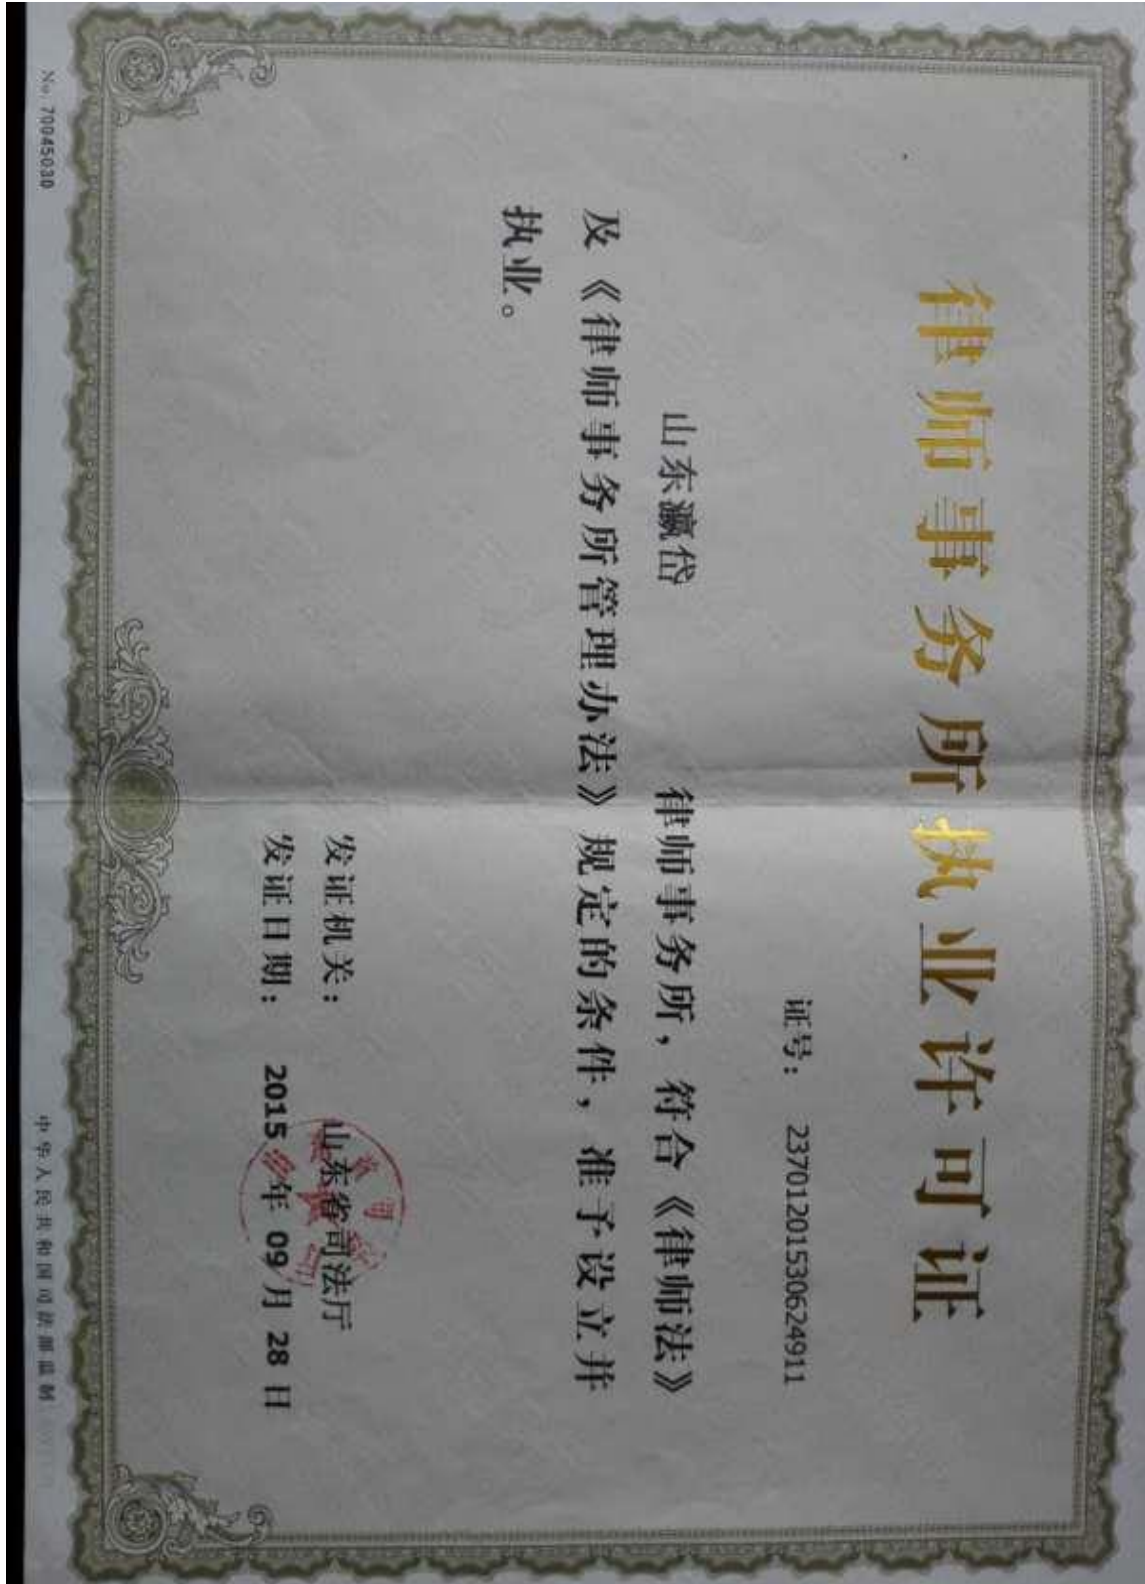 律师事务所执业许可证
证号： 23701201530624911
山东瀛岱 律师事务所，符合《律师法》
及《律师事务所管理办法》规定的条件，准予设立并
执业。
发证机关： 山东省司法厅
发证日期： 2015 年 09 月 28 日
No. 70045030
中华人民共和国司法部监制